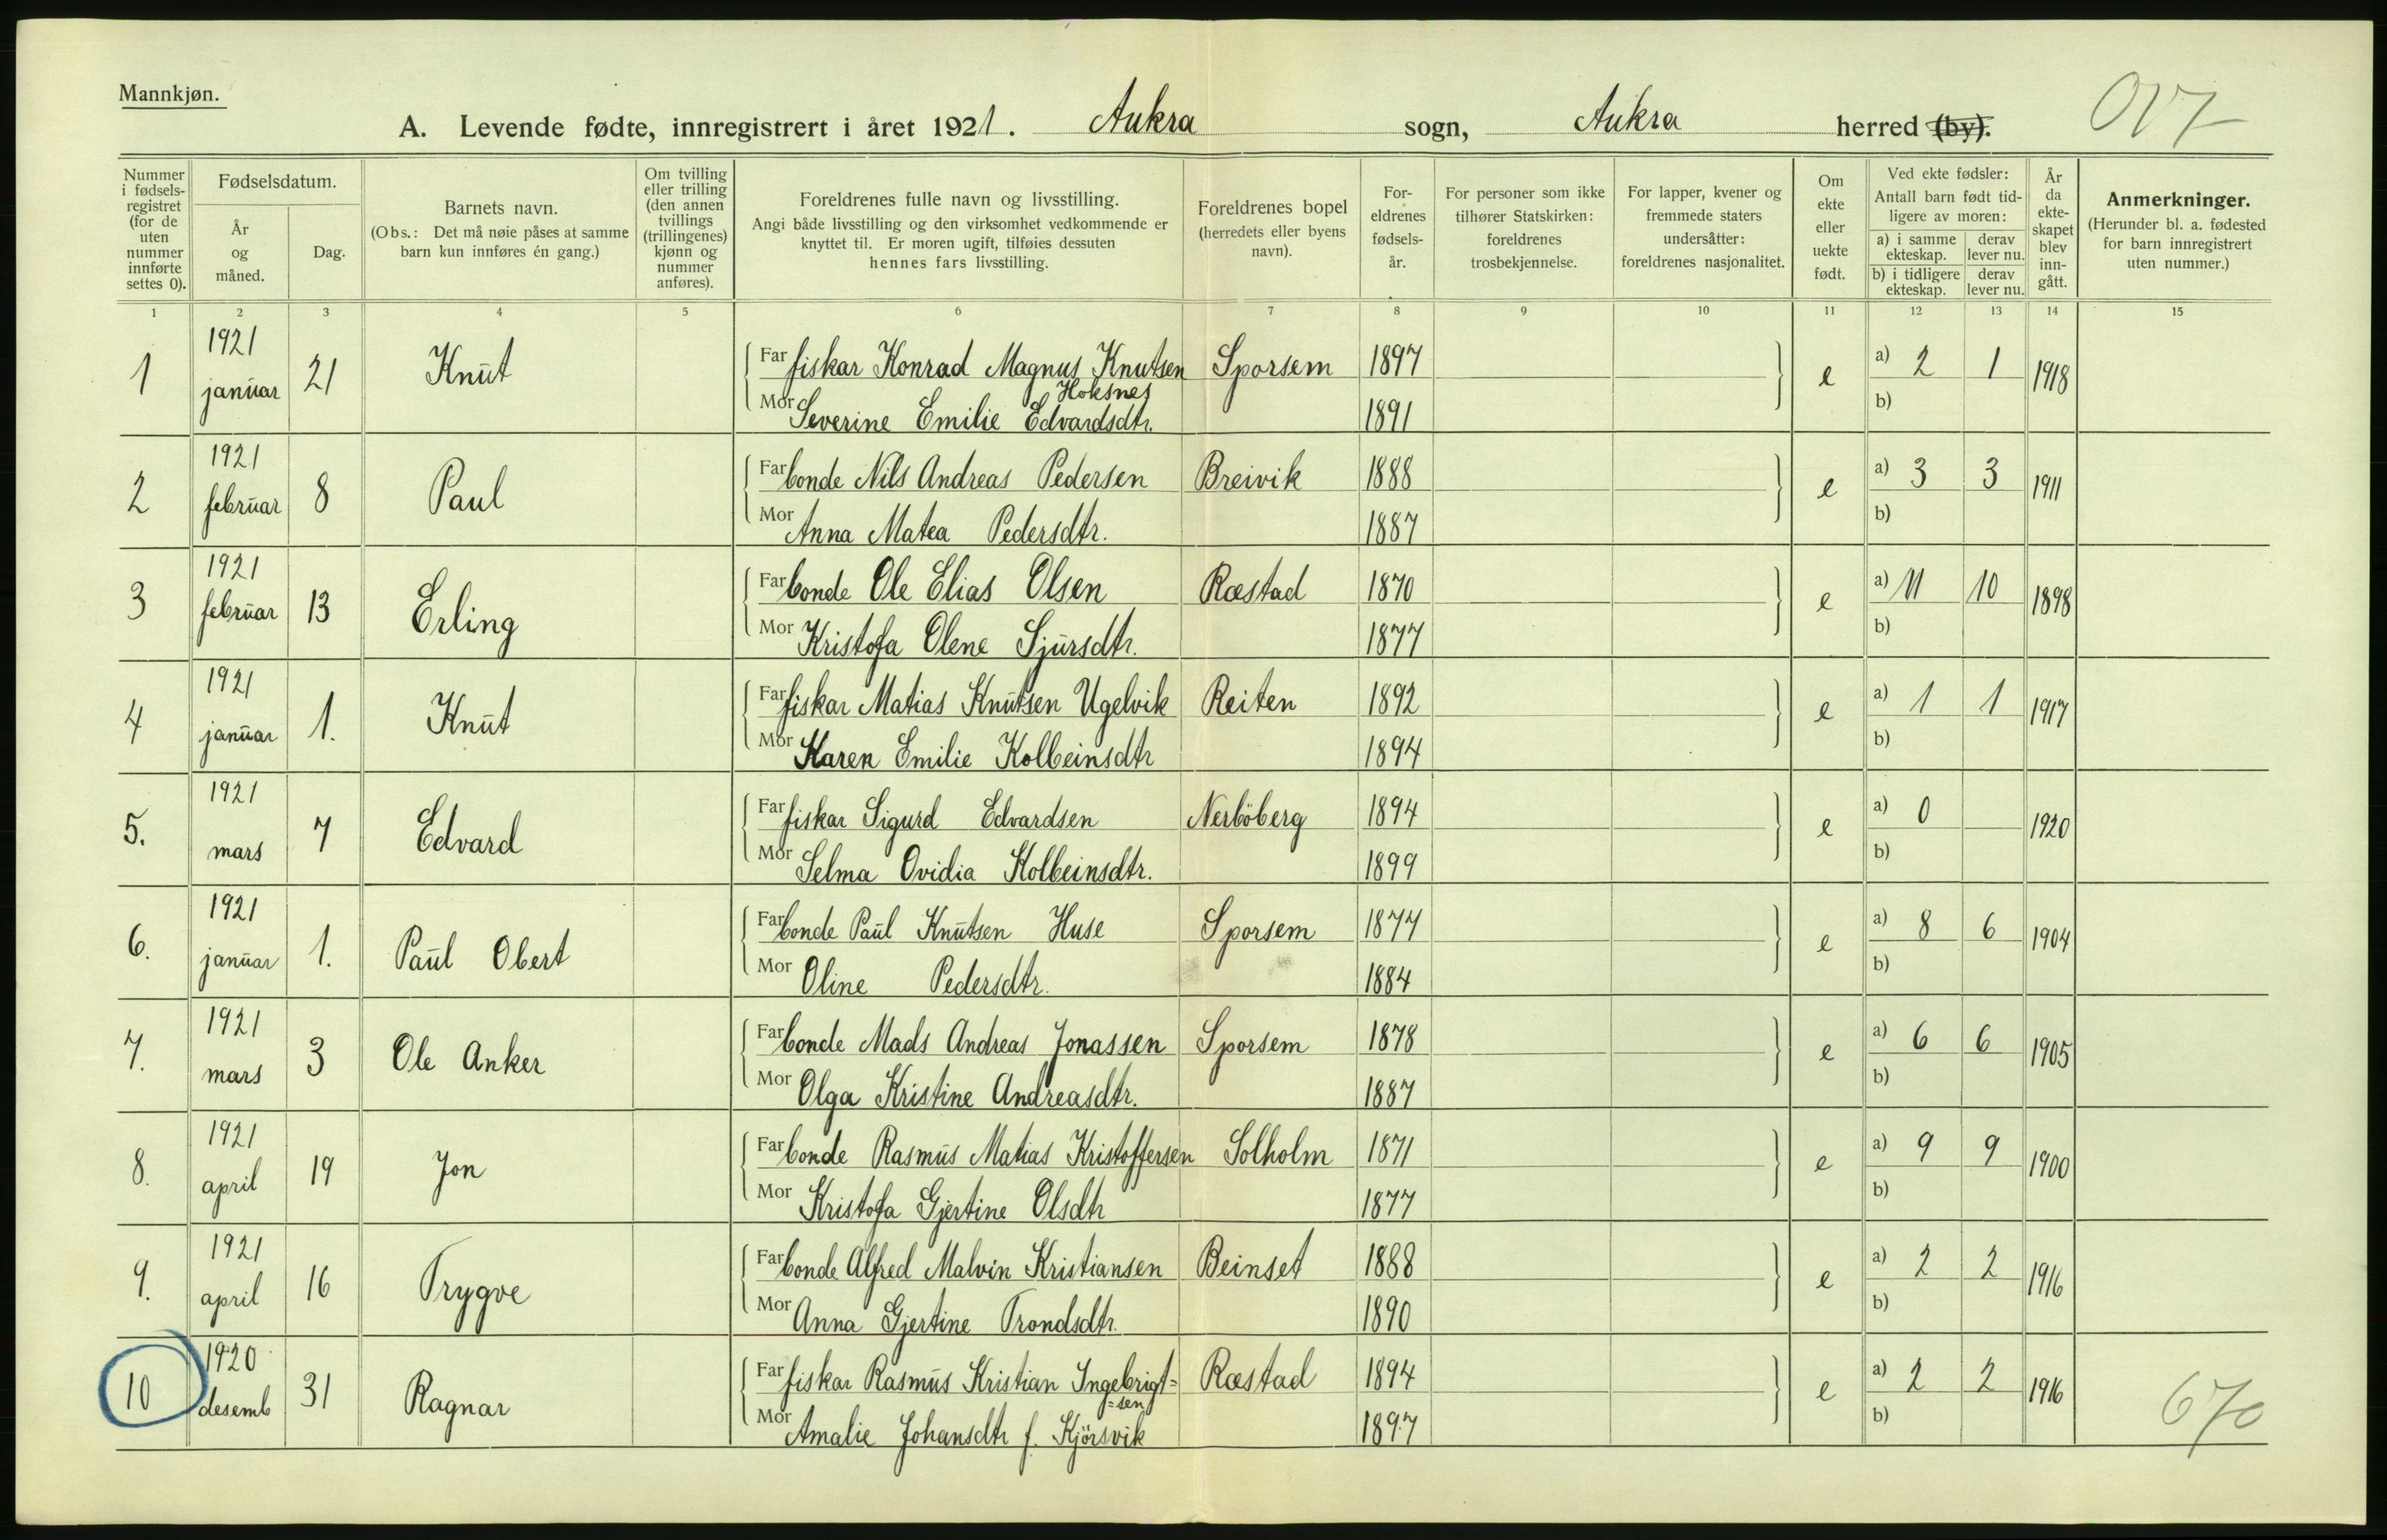 Mannkjøn.
A. Levende fødte, innregistrert i året 1921. Aukra sogn, Aukra herred (by).
Nummer i fødsels-registret (for de uten nummer innførte settes 0).
Fødselsdatum.
År og måned.
Dag.
Barnets navn.
(Obs.: Det må nøie påses at samme barn kun innføres én gang.)
Om tvilling eller trilling (den annen tvillings (trillingenes) kjønn og nummer anføres).
Foreldrenes fulle navn og livsstilling.
Angi både livsstilling og den virksomhet vedkommende er knyttet til. Er moren ugift, tilføies dessuten hennes fars livsstilling.
Foreldrenes bopel (herredets eller byens navn).
For-eldrenes fødsels-år.
For personer som ikke tilhører Statskirken: foreldrenes trosbekjennelse.
For lapper, kvener og fremmede staters undersåtter: foreldrenes nasjonalitet.
Om ekte eller uekte født.
Ved ekte fødsler:
Antall barn født tid-ligere av moren:
a) i samme ekteskap. derav lever nu.
b) i tidligere ekteskap. derav lever nu.
År da ekte-skapet blev inn-gått.
Anmerkninger.
(Herunder bl. a. fødested for barn innregistrert uten nummer.)
1 2 3 4 5 6 7 8 9 10 11 12 13 14 15
1 1921 januar 21 Knut Far fiskar Konrad Magnus Knutsen Hoksnes Sporsem 1897 e a) 2 1 1918
Mor Severine Emilie Edvardsdtr. 1891 b)
2 1921 februar 8 Paul Far bonde Nils Andreas Pedersen Breivik 1888 e a) 3 3 1911
Mor Anna Matea Pedersdtr. 1887 b)
3 1921 februar 13 Erling Far bonde Ole Elias Olsen Ræstad 1870 e a) 11 10 1898
Mor Kristofa Olene Sjursdtr. 1877 b)
4 1921 januar 1. Knut Far fiskar Matias Knutsen Ugelvik Reiten 1892 e a) 1 1 1917
Mor Karen Emilie Kolbeinsdtr 1894 b)
5. 1921 mars 7 Edvard Far fiskar Sigurd Edvardsen Nerböberg 1894 e a) 0 1920
Mor Selma Ovidia Kolbeinsdtr. 1899 b)
6. 1921 januar 1. Paul Obert Far bonde Paul Knutsen Huse Sporsem 1874 e a) 8 6 1904
Mor Oline Pedersdtr. 1884 b)
7. 1921 mars 3 Ole Anker Far bonde Mads Andreas Jonassen Sporsem 1878 e a) 6 6 1905
Mor Olga Kristine Andreasdtr. 1887 b)
8. 1921 april 19 Jon Far bonde Rasmus Matias Kristoffersen Solholm 1871 e a) 9 9 1900
Mor Kristofa Gjertine Olsdtr 1877 b)
9. 1921 april 16 Trygve Far bonde Alfred Malvin Kristiansen Beinset 1888 e a) 2 2 1916
Mor Anna Gjertine Trondsdtr. 1890 b)
10 1920 desemb 31 Ragnar Far fiskar Rasmus Kristian Ingebrigt=sen Ræstad 1894 e a) 2 2 1916 670
Mor Amalie Johansdtr f. Kjörsvik 1897 b)